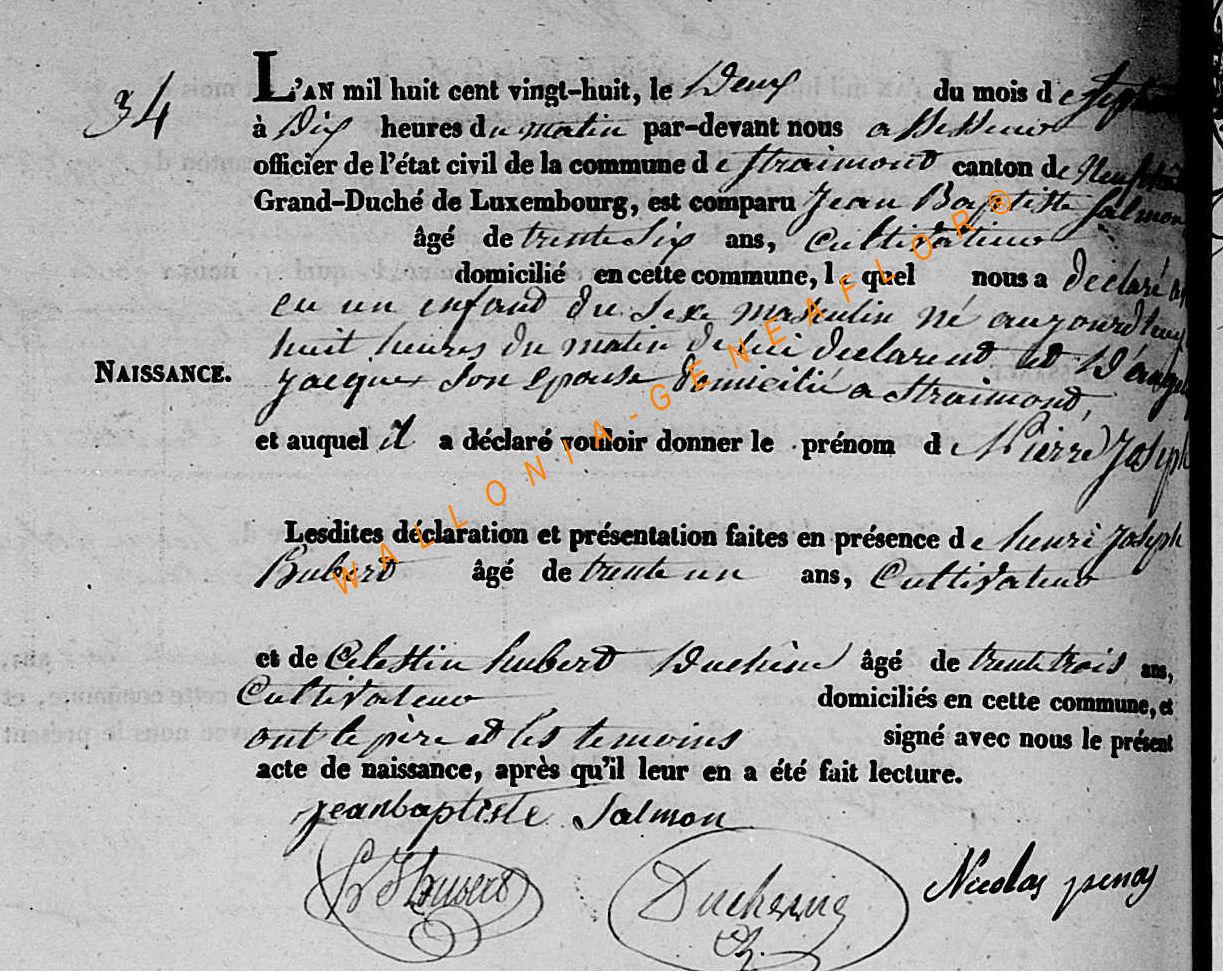 34
L'AN mil huit cent vingt-huit, le Deux du mois de
à Dix heures du matin par-devant nous
officier de l'état civil de la commune de Straimont canton de
Grand-Duché de Luxembourg, est comparu Jean Baptiste Salmon
âgé de trente Six ans, Cultivateur
domicilié en cette commune, le quel nous a déclaré
eu un enfand du Sexe masculin né aujourdhuy
huit heures du matin de lui declarent et D'
NAISSANCE.
jacques Son Epouse Domicilié a Straimond,
et auquel il a déclaré vouloir donner le prénom de Pierre Joseph
Lesdites déclaration et présentation faites en présence de henri Joseph
Huberd âgé de trente un ans, Cultivateur
et de Celestin huberd Duchène âgé de trente trois ans,
Cultivateur domiciliés en cette commune, et
ont le père et les temoins signé avec nous le présent
acte de naissance, après qu'il leur en a été fait lecture.
jeanbaptiste Salmon
Hubert
Duchesne
Nicolas
WALLONIA-GENEAFLOR®